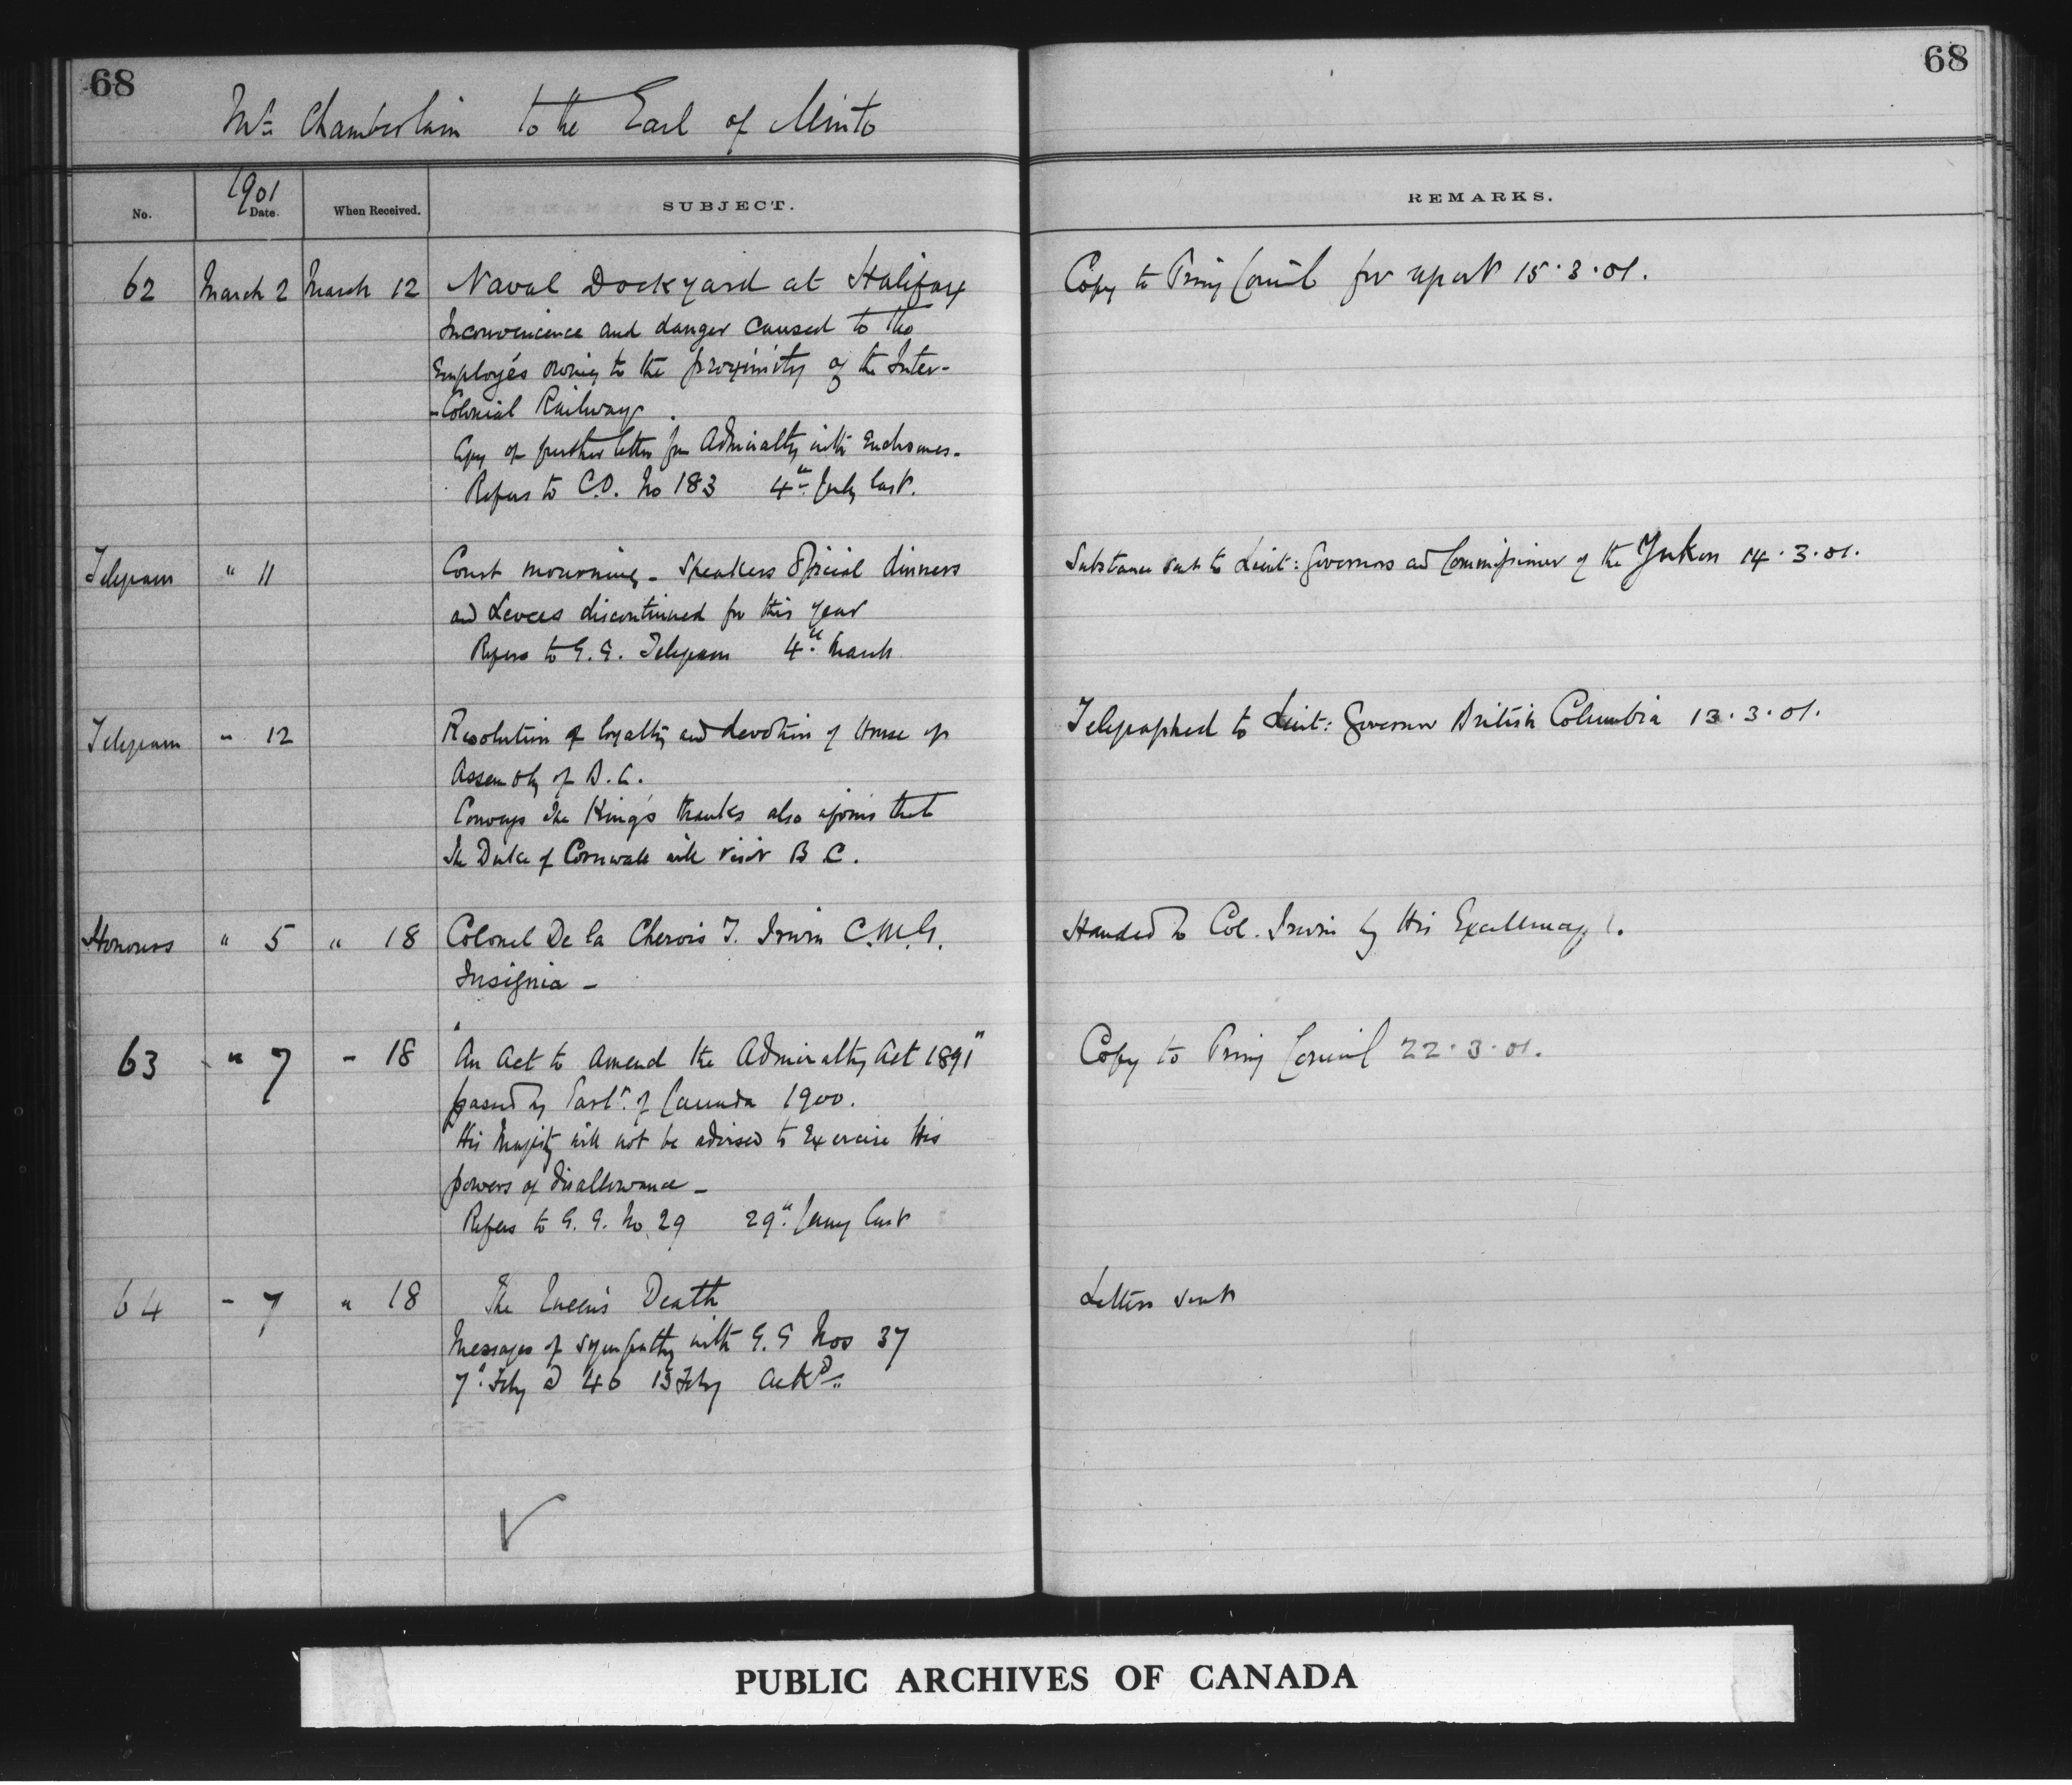 68
68
Mr. Chamberlain to the Earl of Minto
No.
1901
Date.
When Received.
SUBJECT.
REMARKS.
62 March 2 March 12 Naval Dockyard at Halifax
Copy to Privy Council for report 15.3.01.
Inconvenience and danger caused to the
Employés owing to the proximity of the Inter-
-Colonial Railway.
Copy of further letter from Admiralty with Enclosures.
Refers to C.O. No 183 4th July last.
Telegram " 11 Court mourning - Speakers Official dinners
Substance sent to Lieut: Governors and Commissioner of the Yukon 14.3.01.
and Levees discontinued for this year
Refers to G.G. Telegram 4th March
Telegram " 12 Resolution of loyalty and devotion of House of
Telegraphed to Lieut: Governor British Columbia 13.3.01.
Assembly of B.C.
Conveys the King's thanks also informs that
the Duke of Cornwall will visit B.C.
Honours " 5 " 18 Colonel De la Cherois T. Irwin C.M.G.
Handed to Col. Irwin by His Excellency.
Insignia -
63 " 7 - 18 "An Act to amend the Admiralty Act 1891"
Copy to Privy Council 22.3.01.
passed by Parlt. of Canada 1900.
His Majesty will not be advised to Exercise His
powers of disallowance -
Refers to G.G. No. 29 29th Jany last
64 - 7 " 18 The Queen's Death
Letters sent
Messages of sympathy with G.G Nos 37
7th Feby & 46 15 Feby Ackd.
PUBLIC ARCHIVES OF CANADA